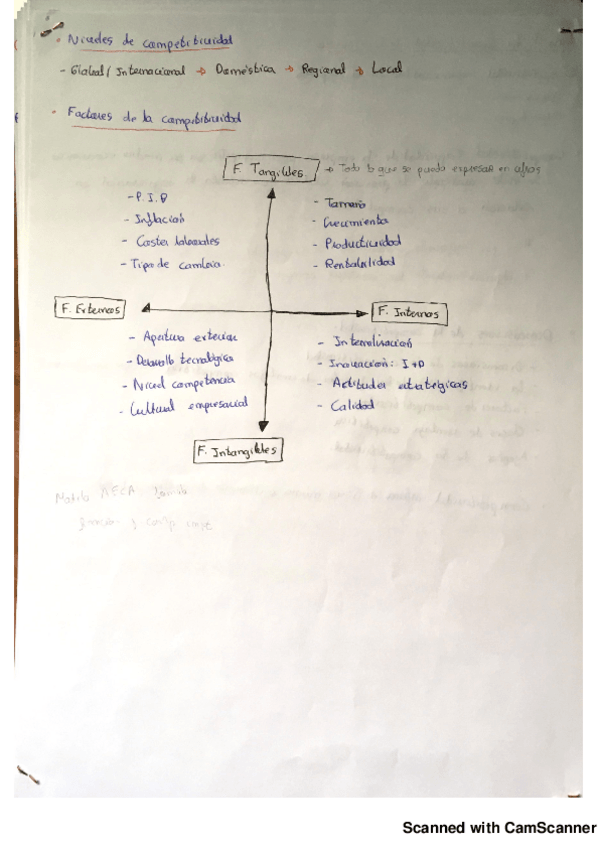 • Niveles de competitividad
- Global / Internacional → Doméstica → Regional → Local
• Factores de la competitividad
F. Tangibles → Todo lo que se puede expresar en cifras
- P.I.B
- Inflación
- Costes laborales
- Tipo de cambio
- Tamaño
- Crecimiento
- Productividad
- Rentabilidad
F. Externos
F. Internos
- Apertura exterior
- Desarrollo tecnológico
- Nivel competencia
- Cultural empresarial
- Internalización
- Inovación: I+D
- Actitudes estratégicas
- Calidad
F. Intangibles
Scanned with CamScanner